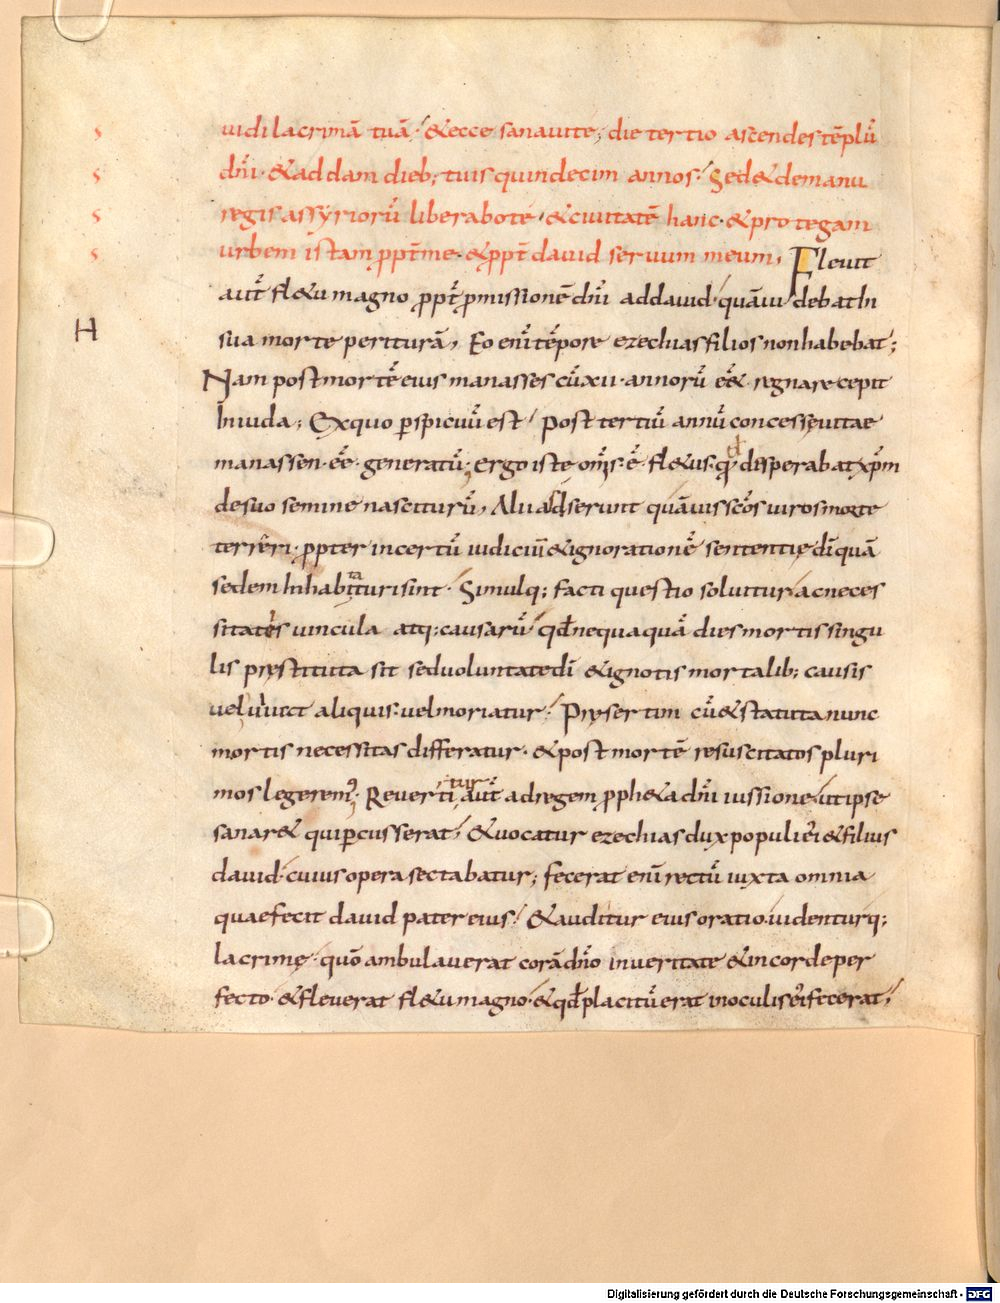 uidi lacrimā tuā. & ecce sanaui te; die tertio ascendes tēplū
dn̄i. & addam dieb; tuis quindecim annos. Sed & de manu
regis assyriorū liberabo te. & ciuitatē hanc. & protegam
urbem istam ppt̄ me. & ppt̄ dauid seruum meum; Fleuit
aut̄ fl&u magno ppt̄ pmissionē dn̄i ad dauid. quā uidebat In
sua morte perituram̄; Eo enī tēpore ezechias filios non habebat;
Nam post mortē eius manasses cū xii. annorū eēt. regnare cepit
In iuda; Ex quo pspicuū est. post tertiū annū concesse uitae
manassen. eē. generatū; Ergo iste om̄is. ē. fl&us. qd disperabat xpm̄
de suo semine nasciturū; Alii adserunt quāuis scōs uiros morte
terreri. ppter incertū iudiciū & ignorationē sententię dī quā
sedem Inhabitaturi sint. Simulq; facti questio soluitur ac neces
sitatis uincula atq; causarū. qd nequaquā dies mortis singu
lis pręstituta sit sed uoluntate dī & ignotis mortalib; causis
uel uiuit aliquis. uel moriatur. Pręsertim cū & statuta nunc
mortis necessitas differatur. & post mortē resuscitatos pluri
mos legerem9. Reuertitur aut̄ ad regem pph&a dn̄i iussione. ut ipse
sanar& qui pcusserat; & uocatur ezechias dux populi ei & filius
dauid. cuius opera sectabatur; fecerat enī rectū iuxta omnia
quae fecit dauid pater eius. & auditur eius oratio. uidenturq;
lacrimę. quō ambulauerat corā dn̄o in ueritate & in corde per
fecto. & fleuerat fl&u magno. & qd placitū erat in oculis ei fecerat;
s
s
s
s
H
Digitalisierung gefördert durch die Deutsche Forschungsgemeinschaft - DFG